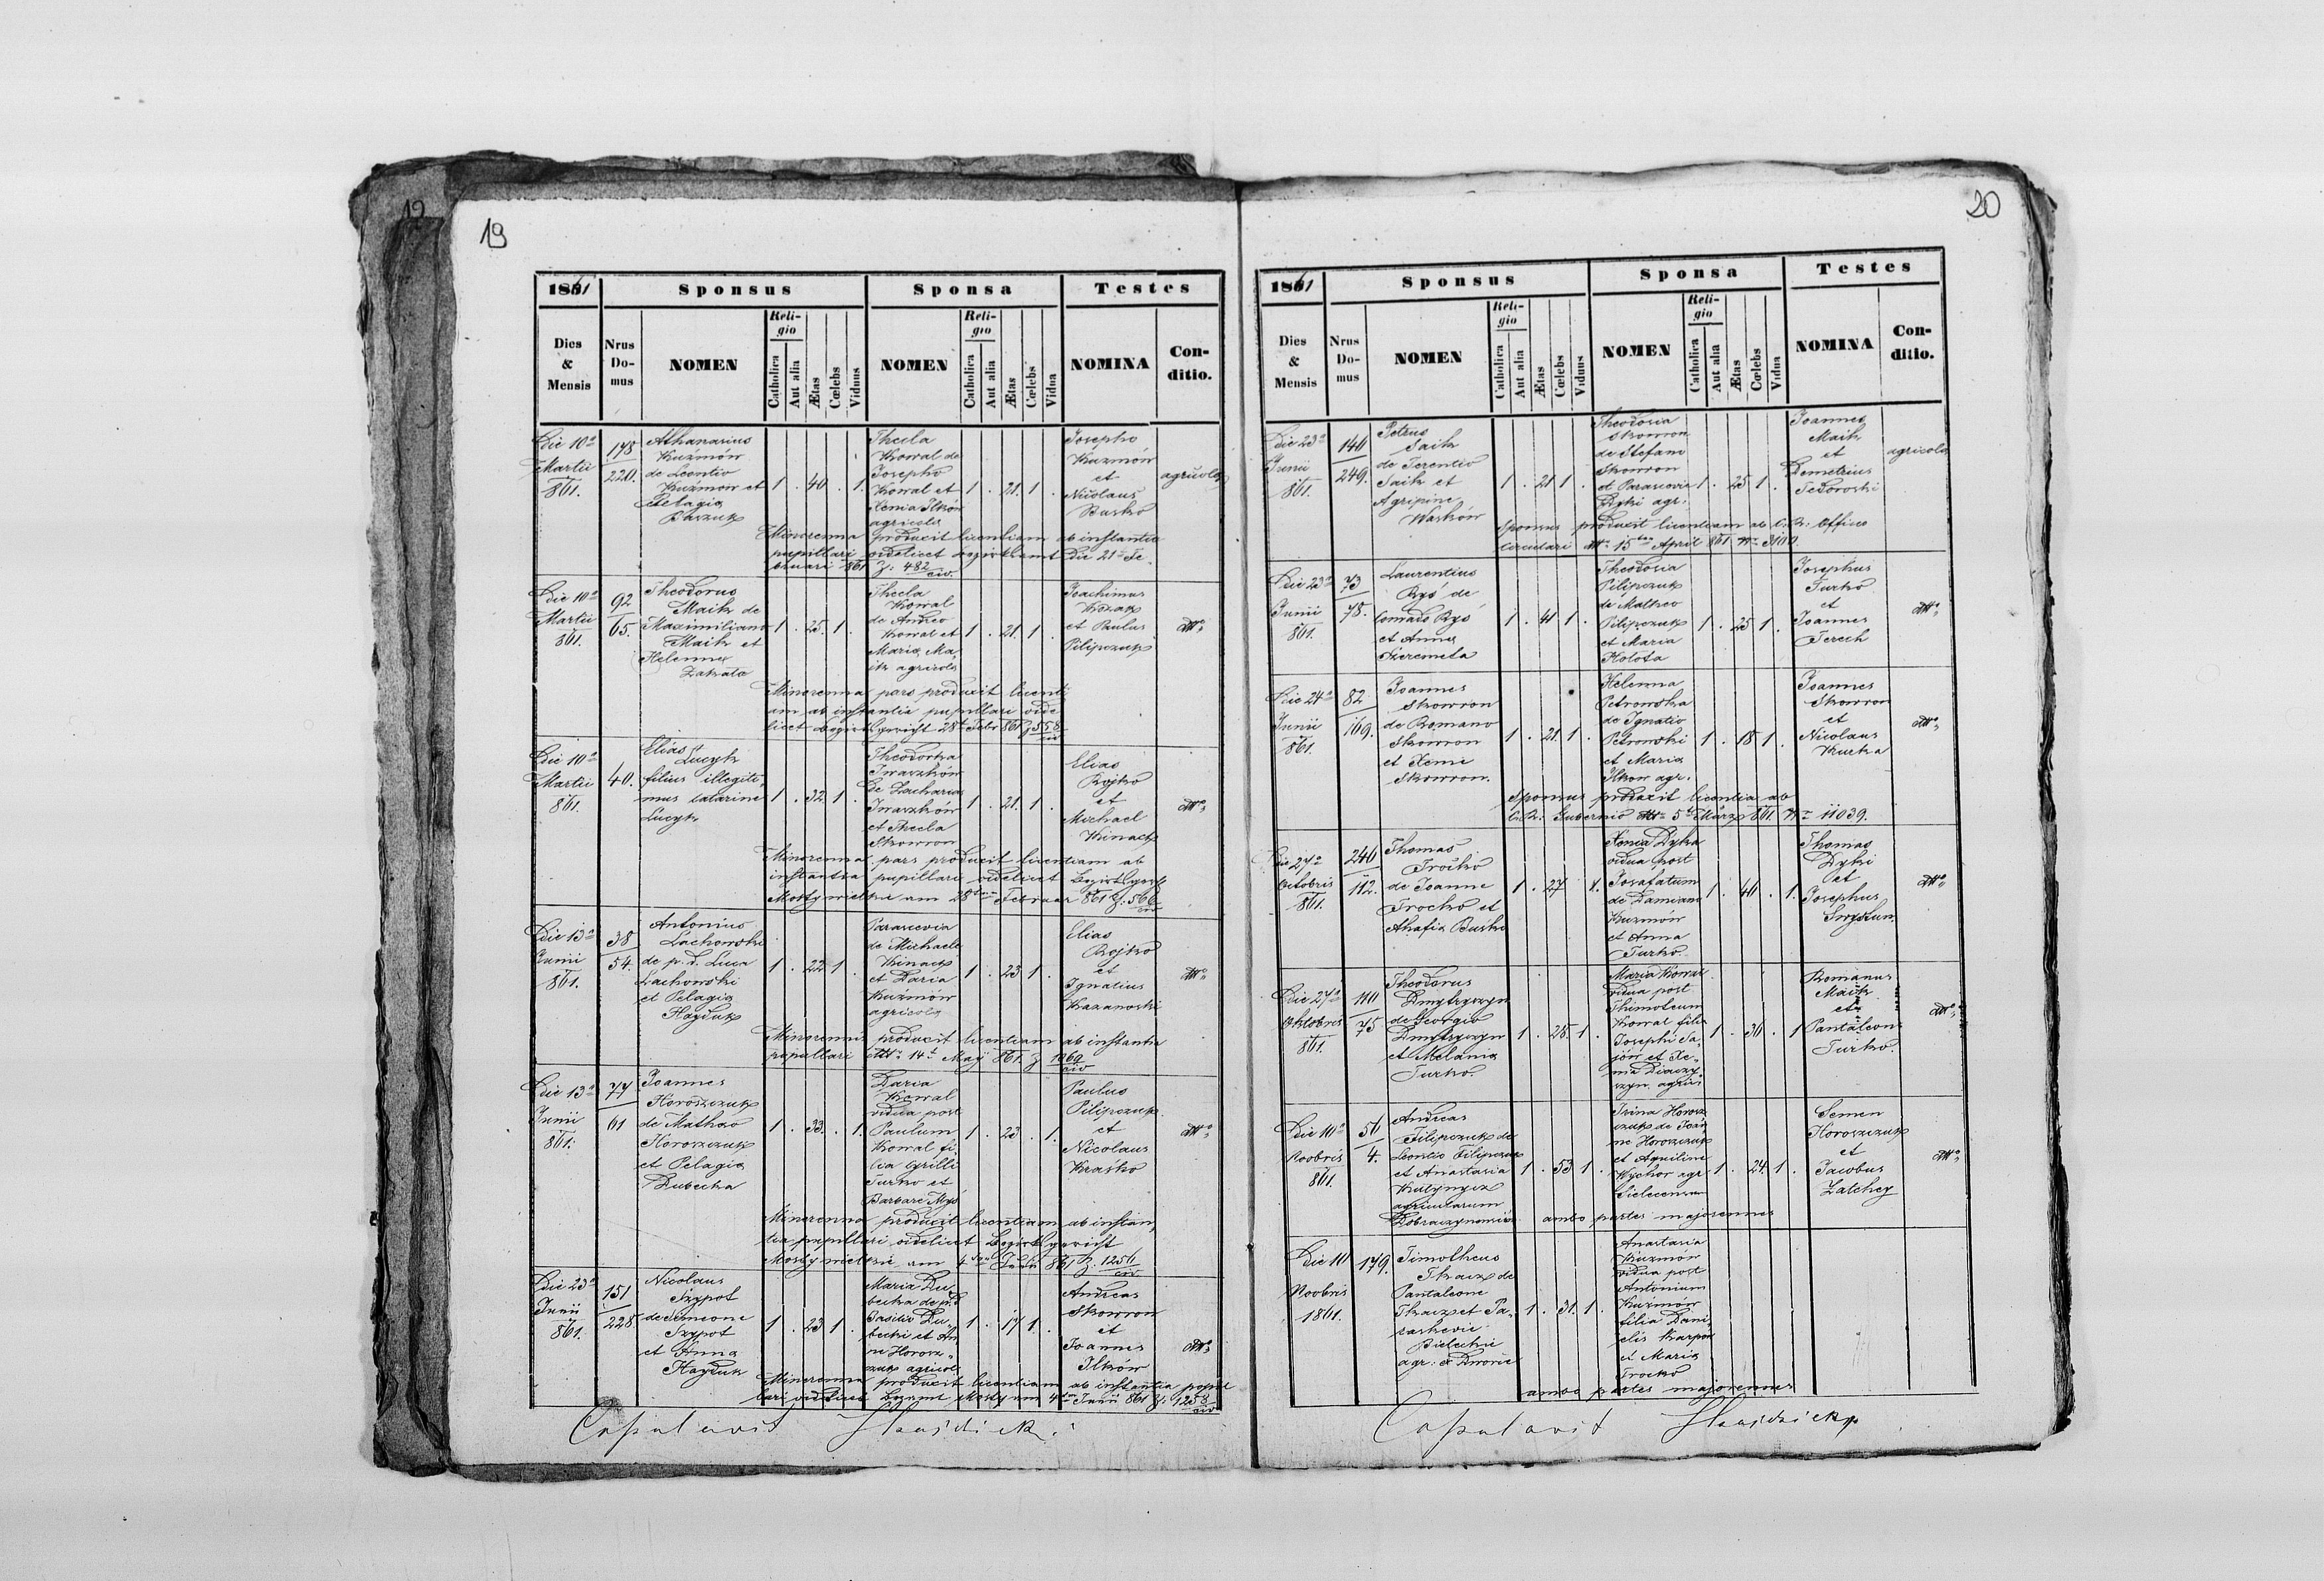 12
19
1861
Sponsus
Sponsa
Testes
Dies & Mensis
Nrus Domus
NOMEN
Religio
Catholica
Aut alia
Ætas
Cœlebs
Viduus
NOMEN
Religio
Catholica
Aut alia
Ætas
Cœlebs
Vidua
NOMINA
Conditio.
Die 10a
Martii
861.
178
220.
Athanasius
Kuźmów
de Leontio
Kuźmów et
Pelagia
1 . 40 . 1.
Thecla
Kowal de
Josepho
Kowal et
Xenia Ilków
agricola
1 . 21. 1 .
Josepho
Kuzmów
et
Nicolaus
Busko
agricola
Minorenna produxit licentiam ab instantia
pupillari videlicet Bezirksamt Die 21a Fe-
bruari 861 Z: 482
civ.
Die 10a
Martii
861.
92
65.
Theodorus
Maik de
Maximiliano
Maik et
Helenna
1 . 25. 1 .
Thecla
Kowal
de Andreo
Kowal et
Maria Ma-
ik agricola
1 . 21. 1 .
Joachimus
et Paulus
Pilipczuk
dtto
Minorenna pars produxit licenti
am ab instantia pupillari vide
licet Bezirksgericht 28t Febr 861 Z 558
civ
Die 10a
Martii
861.
40.
Elias
Łucyk
filius illegiti-
mus Catarine
Łucyk
1 . 32. 1 .
Theodorka
Iwaszków
de Zacharia
Iwaszków
et Thecla
Skowron
1 . 21. 1 .
Elias
Rojko
et
Michael
Kinach
dtto
Minorenna pars produxit licentiam ab
instantia pupillari videlicet
Mosty wielkie am 28ten Februar 861 Z: 566
civ
Die 13a
Junii
861.
38
54.
Antonius
Lachowski
de p. d. Luca
Lachowski
et Pelagia
Hayduk
1 . 22 1 .
Parascevia
de Michaele
Kinach
et Daria
Kuźmów
agricola
1 . 23 1 .
Elias
Rojko
et
Ignatius
Kazanoski
dtto
Minorennis produxit licentiam ab instantia
pupillari dtto 14t May 861. Z 1069
civ
Die 13a
Junii
861.
77
61
Joannes
Horoszczuk
de Matheo
Horoszczuk
et Pelagia
Dubecka
1 . 33. . 1.
Daria
Kowal
vidua post
Paulum
Kowal fi-
lia Cyrilli
Turko et
Barbare Myś
1 . 23 . 1.
Paulus
Pilipczuk
et
Nicolaus
Kraśko
dtto
Minorenna produxit licentiam ab instan,
tia pupillari videlicet Bezirksgericht
Mosty wielkie am 4ten Juni 861 Z. 1256
civ
Die 23a
Junii
861.
151
228
Nicolaus
Szypot
de Simeone
Szypot
et Anna
Hayduk
1 . 23 1 .
Maria Du-
becka de p.d.
Basilio Du-
becki et An
ne Horosz-
czuk agricol.
1 . 17 1 .
Andreas
Skowron
et
Joannes
Ilków
dtto
Minorenna produxit licentiam ab instantia pupil
lari videlicet Bezamt Mosty am 4ten Junii 861 Z: 1258
civ
Copulavit
20
1861
Sponsus
Sponsa
Testes
Dies & Mensis
Nrus Domus
NOMEN
Religio
Catholica
Aut alia
Ætas
Cœlebs
Viduus
NOMEN
Religio
Catholica
Aut alia
Ætas
Cœlebs
Vidua
NOMINA
Conditio.
Die 23a
Junii
861.
140
249.
Petrus
Saik
de Terentio
Saik et
Agripine
Waśków
1 . 21 1 .
Theodosia
Skowron
de Stefano
Skowron
et Parascevia
Dyki agr.
1 . 25 1 .
Joannes
Maik
et
Demetrius
Fedoroski
agricola
Sponsus produxit licentiam ab C. K: Officio
Circulari dtto 15ten April 861 Nro 3100.
Die 23a
Junii
861.
73
78.
Laurentius
Ryś de
Conrado Ryś
et Anna
Szeremeta
1 . 41 1 .
Theodosia
Pilipczuk
de Matheo
Pilipczuk
et Maria
Holota
1 . 25 1 .
Josephus
Turko
et
Joannes
Terech
dtto
Die 24a
Junii
861.
82
169.
Joannes
Skowron
de Romano
Skowron
et Xeni
Skowron.
1 . 21. 1 .
Helenna
Petrowska
de Ignatio
Petrowski
et Maria
Ilkow agr.
1 . 18 1 .
Joannes
Skowron
et
Nicolaus
Kurka
dtto
Sponsus produxit licentia ab
C. K: Gubernio dtto 5t März 861. Nro 11039.
Die 27a
Octobris
861.
246
112.
Thomas
Troćko
de Joanne
Trocko et
Ahafia Buśko
1 . 27 1.
Xenia Dyka
vidua post
Josafatum
de Damiano
Kuzmów
et Anna
Turko.
1 . 40 . 1.
Thomas
Dyki
et
Josephus
dtto
Die 27a
Oktobris
861.
110
75
Theodorus
Dmytryszyn
de Georgio
Dmytryszyn
et Melania
Turko.
1 . 28. 1 .
Maria Kowal
vidua post
Thimoteum
Kowal filia
Josephi Sa-
jów et Xe-
nia
agric:
1 . 36 . 1
Romanus
Maik
et
Pantaleon
Turko.
dtto
Die 10a
Novbris
861.
56
4.
Andreas
Filipczuk de
Leontio Filipczuk
et Anastasia
agricolarum
1 . 53 1 .
Irina Horosz
czuk de Joan
ne Horoszczuk
et Aquiline
Wychor agr
1 . 24. 1 .
Semen
Horoszczuk
et
Jacobus
Zatchey
dtto
ambo partes majorennes
Die 10
Novbris
1861.
179.
Timotheus
Tkacz de
Pantaleone
Tkacz et Pa-
Bielecki
1 . 31. 1 .
Anastasia
Kuzmów
vidua post
Antonium
Kuźmów
filia Dani-
elis Karpów
et Maria
Trocko
ambo partes majorennes
Copulavit